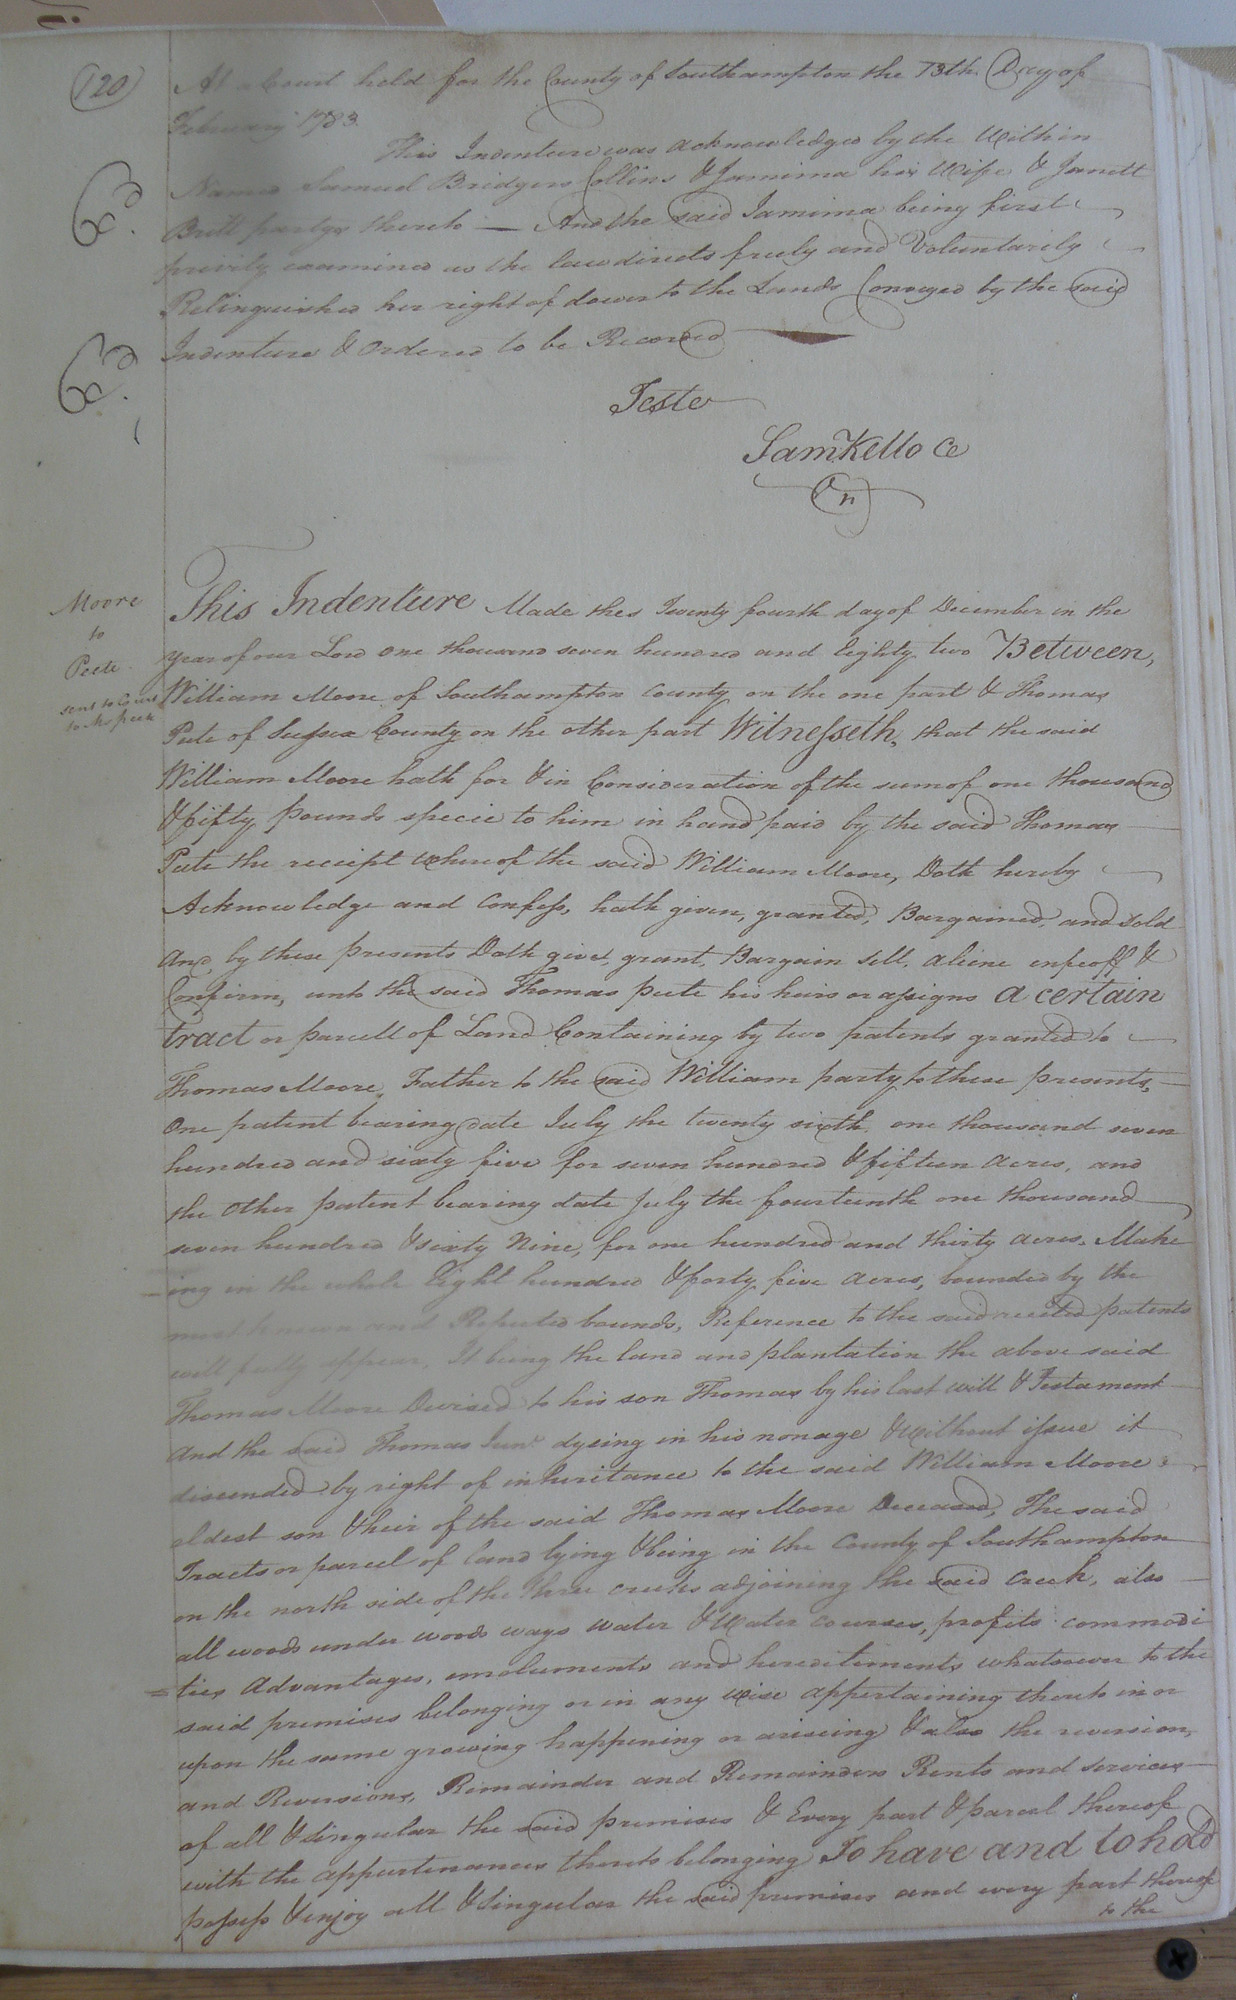 120
At a Court held for the County of Southampton the 13th. Day of
February 1783.
This Indenture was acknowledged by the Within
Named Samuel Bridgers Collins & Jamima his Wife & Jarrett
Britt partys thereto — And the said Jamima being first
privily examined as the law directs freely and Voluntarily
Relinquished her right of dower to the Lands Conveyed by the said
Indenture & Ordered to be Recorded
Exd.
Exd.
Teste
Saml Kello Ce
Moore
to
Peete.
sent to
to Mr peete
This Indenture Made thes Twenty fourth day of December in the
Year of our Lord one thousand seven hundred and Eighty two Between,
William Moore of Southampton County on the one part & Thomas
Pete of Sussex County on the other part Witnesseth, that the said
William Moore hath for & in Consideration of the sum of one thousand
& fifty pounds specie to him in hand paid by the said Thomas
Pete the receipt whereof the said William Moore, Doth hereby
Acknowledge and Confess, hath given, granted, Bargained, and sold
And by these presents Doth give, grant, Bargain sell, aliene enfeoff &
Confirm, unto the said Thomas pete his heirs or assigns a certain
tract or parcell of Land Containing by two patents granted to
Thomas Moore, Father to the said William party to these presents,
One patent bearing date July the twenty sixth one thousand seven
hundred and sixty five for seven hundred & fifteen acres, and
the Other patent bearing date July the fourteenth one thousand
seven hundred & sixty Nine, for one hundred and thirty acres. Make
=ing in the whole Eight hundred & forty five acres, bounded by the
most known and Reputed bounds, Reference to the said recited patents
will fully appear, It being the land and plantation the above said
Thomas Moore Devised to his son Thomas by his last will & Testament
And the said Thomas Junr. dying in his nonage & without issue it
discended by right of inheritance to the said William Moore
eldest son & heir of the said Thomas Moore Deceased, The said
Tracts or parcel of land lying & being in the County of Southampton
on the north side of the Three creeks adjoining the said Creek, also
all woods under woods ways water & Water courses, profits commodi
=ties Advantages, emoluments and hereditiments whatsoever to the
said premises belonging or in any wise appertaining thereto in or
upon the same growing happening or ariseing & also the reversion,
and Reversions, Remainder and Remainders Rents and services
of all & singular the said premises & Every part & parcel thereof
with the appurtenances thereto belonging To have and to hold
possess & enjoy all & Singular the said premises and every part thereof
to the